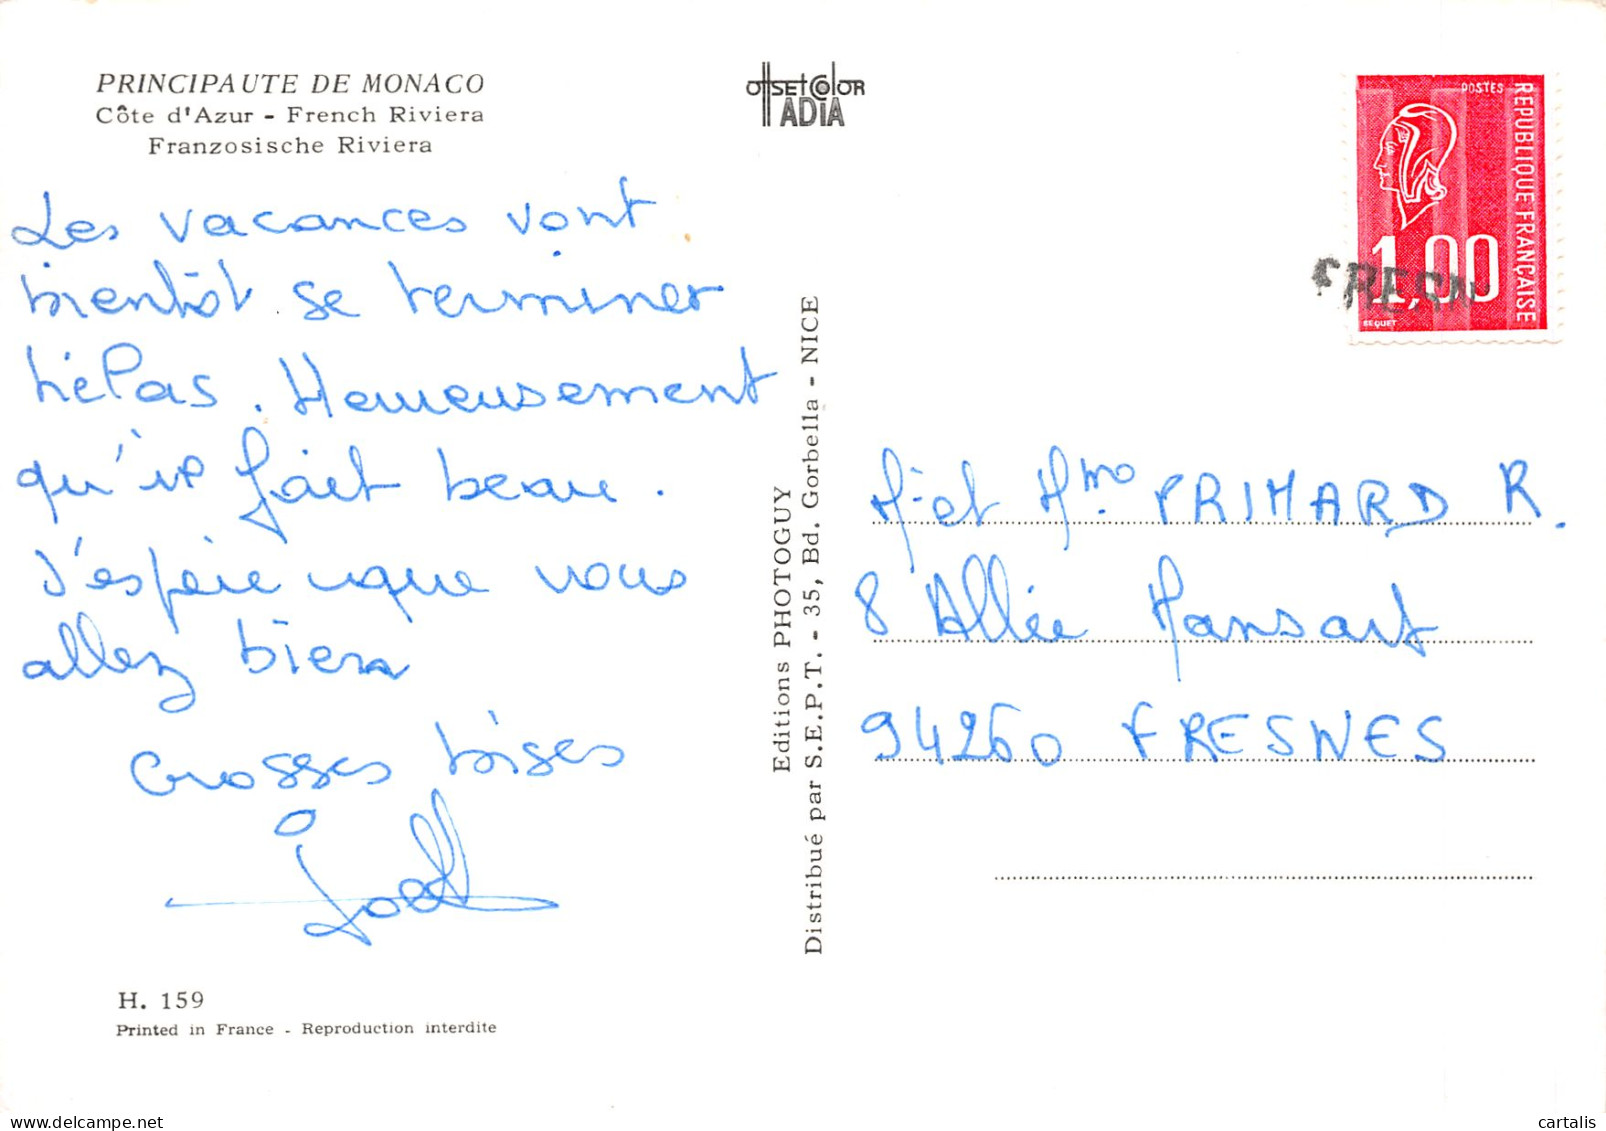 PRINCIPAUTE DE MONACO
Côte d'Azur - French Riviera
Franzosische Riviera
OffsetColor
ADIA
POSTES
REPUBLIQUE FRANÇAISE
1,00
BEQUET
Les vacances vont
bientôt se terminer
hélas. Heureusement
qu'il fait beau.
J'espère que vous
allez bien
Grosses bises
Editions PHOTOGUY
Distribué par S.E.P.T. - 35, Bd. Gorbella - NICE
M. et Mme PRIMARD R.
8 Allée Mansart
94260 FRESNES
H. 159
Printed in France - Reproduction interdite
cartalis